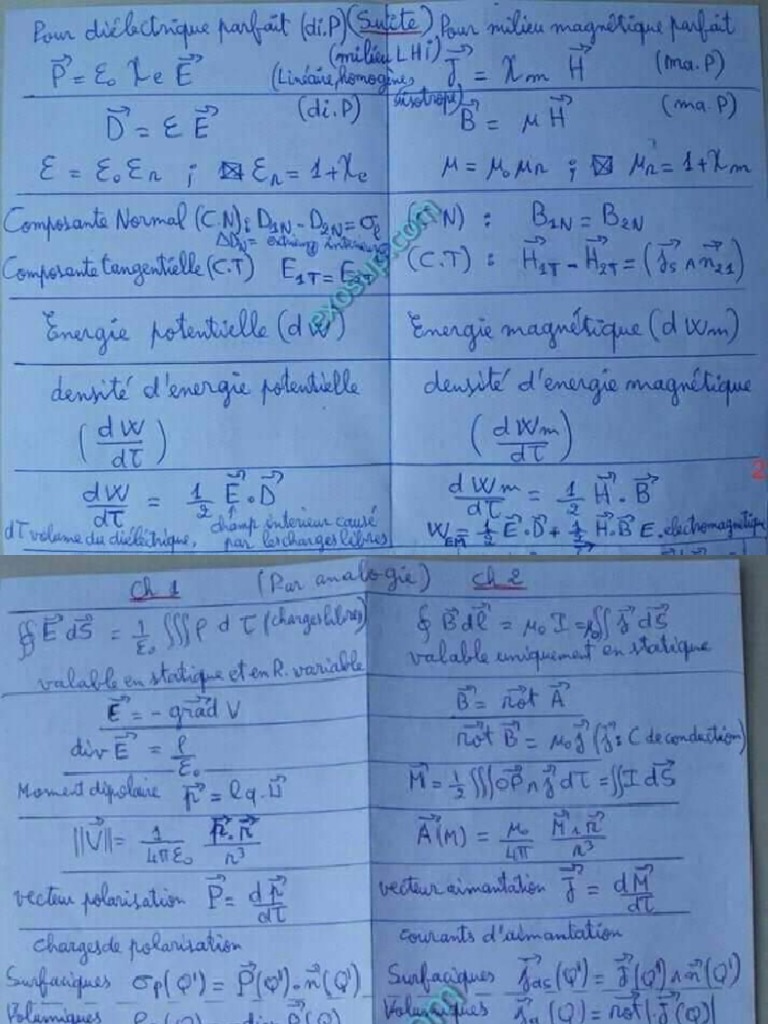 Pour diélectrique parfait (di.P) (Suite) Pour milieu magnétique parfait
(milieu LHi)
P⃗ = ε₀ χe E⃗ (Linéaire, homogène, isotrope) J⃗ = χm H⃗ (ma.P)
D⃗ = ε E⃗ (di.P) B⃗ = μ H⃗ (ma.P)
ε = ε₀ εr ; ⊠ εr = 1 + χe μ = μ₀ μr ; ⊠ μr = 1 + χm
Composante Normal (C.N) : D1N - D2N = σl (C.N) : B1N = B2N
Composante tangentielle (C.T) E1T = E2T (C.T) : H⃗1T - H⃗2T = (j⃗s ∧ n⃗21)
Energie potentielle (dW) Energie magnétique (dWm)
densité d'énergie potentielle densité d'énergie magnétique
(dW/dτ) (dWm/dτ)
dW/dτ = 1/2 E⃗ . D⃗ dWm/dτ = 1/2 H⃗ . B⃗
champ interieur causé
dτ volume du diélectrique, par les charges libres WEM = 1/2 E⃗ . D⃗ + 1/2 H⃗ . B⃗ E. electromagnétique
2
exosup.com
Ch 1 (Par analogie) Ch 2
∯ E⃗ dS⃗ = 1/ε₀ ∭ ρ dτ (charges libres) ∮ B⃗ dl⃗ = μ₀ I = μ₀ ∬ j⃗ dS⃗
valable en statique et en R. variable valable uniquement en statique
E⃗ = - grad V B⃗ = rot A⃗
div E⃗ = ρ/ε₀ rot B⃗ = μ₀ j⃗ (j⃗ : C de conduction)
Moment dipolaire p⃗ = l q . u⃗ M⃗ = 1/2 ∭ OP⃗ ∧ j⃗ dτ = ∬ I dS⃗
||V⃗|| = 1/4πε₀ p⃗.r⃗/r³ A⃗(M) = μ₀/4π M⃗ ∧ r⃗/r³
vecteur polarisation P⃗ = dp⃗/dτ vecteur aimantation J⃗ = dM⃗/dτ
charges de polarisation courants d'aimantation
Surfaciques σp(Q') = P⃗(Q') . n⃗(Q') Surfaciques j⃗as(Q') = J⃗(Q') ∧ n⃗(Q')
Volumiques Volumiques j⃗a(Q) = rot J⃗(Q)